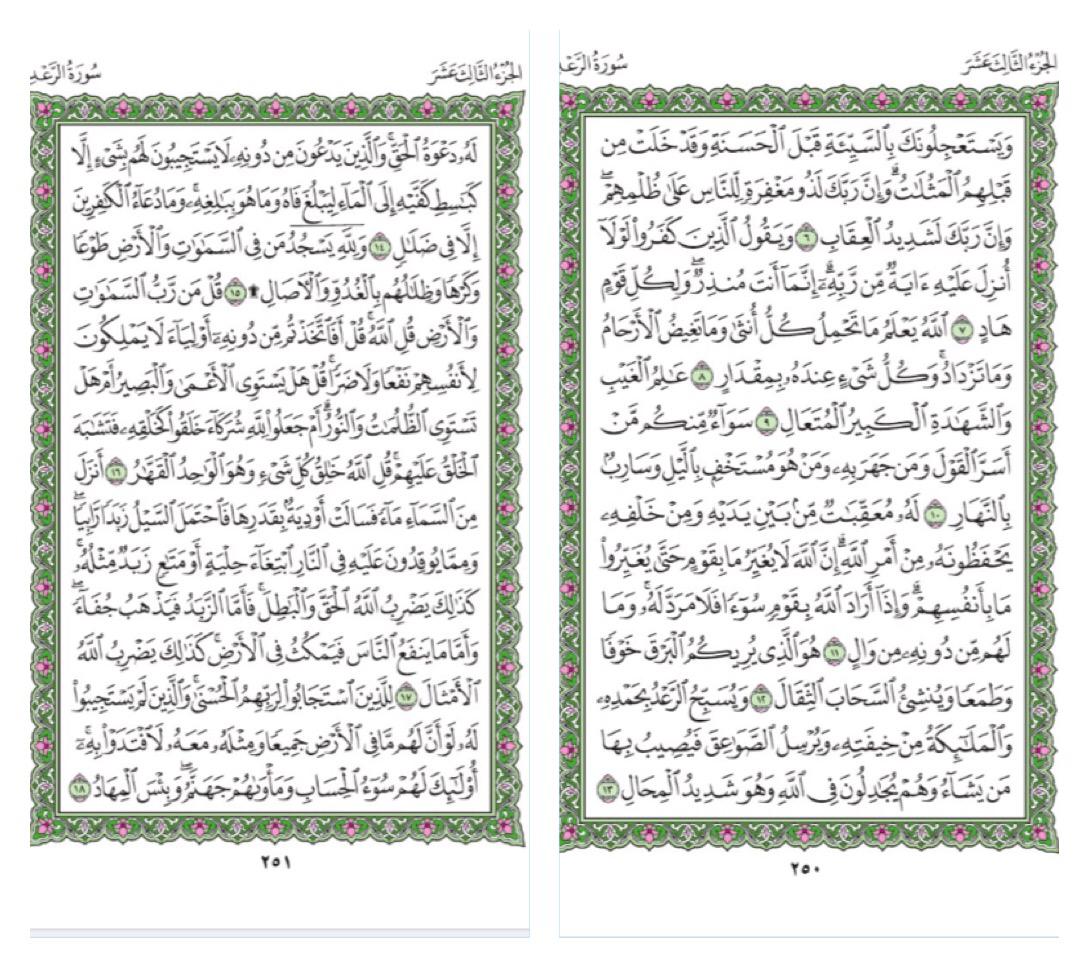 الجزء الثالث عشر
سورة الرعد
وَيَسْتَعْجِلُونَكَ بِالسَّيِّئَةِ قَبْلَ الْحَسَنَةِ وَقَدْ خَلَتْ مِن
قَبْلِهِمُ الْمَثُلَاتُ ۗ وَإِنَّ رَبَّكَ لَذُو مَغْفِرَةٍ لِّلنَّاسِ عَلَىٰ ظُلْمِهِمْ ۖ
وَإِنَّ رَبَّكَ لَشَدِيدُ الْعِقَابِ ٦ وَيَقُولُ الَّذِينَ كَفَرُوا لَوْلَا
أُنزِلَ عَلَيْهِ ءَايَةٌ مِّن رَّبِّهِۦ ۗ إِنَّمَا أَنتَ مُنذِرٌ ۖ وَلِكُلِّ قَوْمٍ
هَادٍ ٧ اللَّهُ يَعْلَمُ مَا تَحْمِلُ كُلُّ أُنثَىٰ وَمَا تَغِيضُ الْأَرْحَامُ
وَمَا تَزْدَادُ ۖ وَكُلُّ شَىْءٍ عِندَهُۥ بِمِقْدَارٍ ٨ عَٰلِمُ الْغَيْبِ
وَالشَّهَٰدَةِ الْكَبِيرُ الْمُتَعَالِ ٩ سَوَآءٌ مِّنكُم مَّنْ
أَسَرَّ الْقَوْلَ وَمَن جَهَرَ بِهِۦ وَمَنْ هُوَ مُسْتَخْفٍۭ بِالَّيْلِ وَسَارِبٌۢ
بِالنَّهَارِ ١٠ لَهُۥ مُعَقِّبَٰتٌ مِّنۢ بَيْنِ يَدَيْهِ وَمِنْ خَلْفِهِۦ
يَحْفَظُونَهُۥ مِنْ أَمْرِ اللَّهِ ۗ إِنَّ اللَّهَ لَا يُغَيِّرُ مَا بِقَوْمٍ حَتَّىٰ يُغَيِّرُوا۟
مَا بِأَنفُسِهِمْ ۗ وَإِذَآ أَرَادَ اللَّهُ بِقَوْمٍ سُوٓءًا فَلَا مَرَدَّ لَهُۥ ۚ وَمَا
لَهُم مِّن دُونِهِۦ مِن وَالٍ ١١ هُوَ الَّذِى يُرِيكُمُ الْبَرْقَ خَوْفًا
وَطَمَعًا وَيُنشِئُ السَّحَابَ الثِّقَالَ ١٢ وَيُسَبِّحُ الرَّعْدُ بِحَمْدِهِۦ
وَالْمَلَٰٓئِكَةُ مِنْ خِيفَتِهِۦ وَيُرْسِلُ الصَّوَٰعِقَ فَيُصِيبُ بِهَا
مَن يَشَآءُ وَهُمْ يُجَٰدِلُونَ فِى اللَّهِ وَهُوَ شَدِيدُ الْمِحَالِ ١٣
٢٥٠
الجزء الثالث عشر
سورة الرعد
لَهُۥ دَعْوَةُ الْحَقِّ ۖ وَالَّذِينَ يَدْعُونَ مِن دُونِهِۦ لَا يَسْتَجِيبُونَ لَهُم بِشَىْءٍ إِلَّا
كَبَٰسِطِ كَفَّيْهِ إِلَى الْمَآءِ لِيَبْلُغَ فَاهُ وَمَا هُوَ بِبَٰلِغِهِۦ ۚ وَمَا دُعَآءُ الْكَٰفِرِينَ
إِلَّا فِى ضَلَٰلٍ ١٤ وَلِلَّهِ يَسْجُدُ مَن فِى السَّمَٰوَٰتِ وَالْأَرْضِ طَوْعًا
وَكَرْهًا وَظِلَٰلُهُم بِالْغُدُوِّ وَالْءَاصَالِ ۩ ١٥ قُلْ مَن رَّبُّ السَّمَٰوَٰتِ
وَالْأَرْضِ قُلِ اللَّهُ ۚ قُلْ أَفَاتَّخَذْتُم مِّن دُونِهِۦٓ أَوْلِيَآءَ لَا يَمْلِكُونَ
لِأَنفُسِهِمْ نَفْعًا وَلَا ضَرًّا ۚ قُلْ هَلْ يَسْتَوِى الْأَعْمَىٰ وَالْبَصِيرُ أَمْ هَلْ
تَسْتَوِى الظُّلُمَٰتُ وَالنُّورُ ۗ أَمْ جَعَلُوا لِلَّهِ شُرَكَآءَ خَلَقُوا كَخَلْقِهِۦ فَتَشَٰبَهَ
الْخَلْقُ عَلَيْهِمْ ۚ قُلِ اللَّهُ خَٰلِقُ كُلِّ شَىْءٍ وَهُوَ الْوَٰحِدُ الْقَهَّٰرُ ١٦ أَنزَلَ
مِنَ السَّمَآءِ مَآءً فَسَالَتْ أَوْدِيَةٌۢ بِقَدَرِهَا فَاحْتَمَلَ السَّيْلُ زَبَدًا رَّابِيًا ۚ
وَمِمَّا يُوقِدُونَ عَلَيْهِ فِى النَّارِ ابْتِغَآءَ حِلْيَةٍ أَوْ مَتَٰعٍ زَبَدٌ مِّثْلُهُۥ ۚ
كَذَٰلِكَ يَضْرِبُ اللَّهُ الْحَقَّ وَالْبَٰطِلَ ۚ فَأَمَّا الزَّبَدُ فَيَذْهَبُ جُفَآءً ۖ
وَأَمَّا مَا يَنفَعُ النَّاسَ فَيَمْكُثُ فِى الْأَرْضِ ۚ كَذَٰلِكَ يَضْرِبُ اللَّهُ
الْأَمْثَالَ ١٧ لِلَّذِينَ اسْتَجَابُوا لِرَبِّهِمُ الْحُسْنَىٰ ۚ وَالَّذِينَ لَمْ يَسْتَجِيبُوا۟
لَهُۥ لَوْ أَنَّ لَهُم مَّا فِى الْأَرْضِ جَمِيعًا وَمِثْلَهُۥ مَعَهُۥ لَافْتَدَوْا۟ بِهِۦٓ ۚ
أُو۟لَٰٓئِكَ لَهُمْ سُوٓءُ الْحِسَابِ وَمَأْوَىٰهُمْ جَهَنَّمُ ۖ وَبِئْسَ الْمِهَادُ ١٨
٢٥١